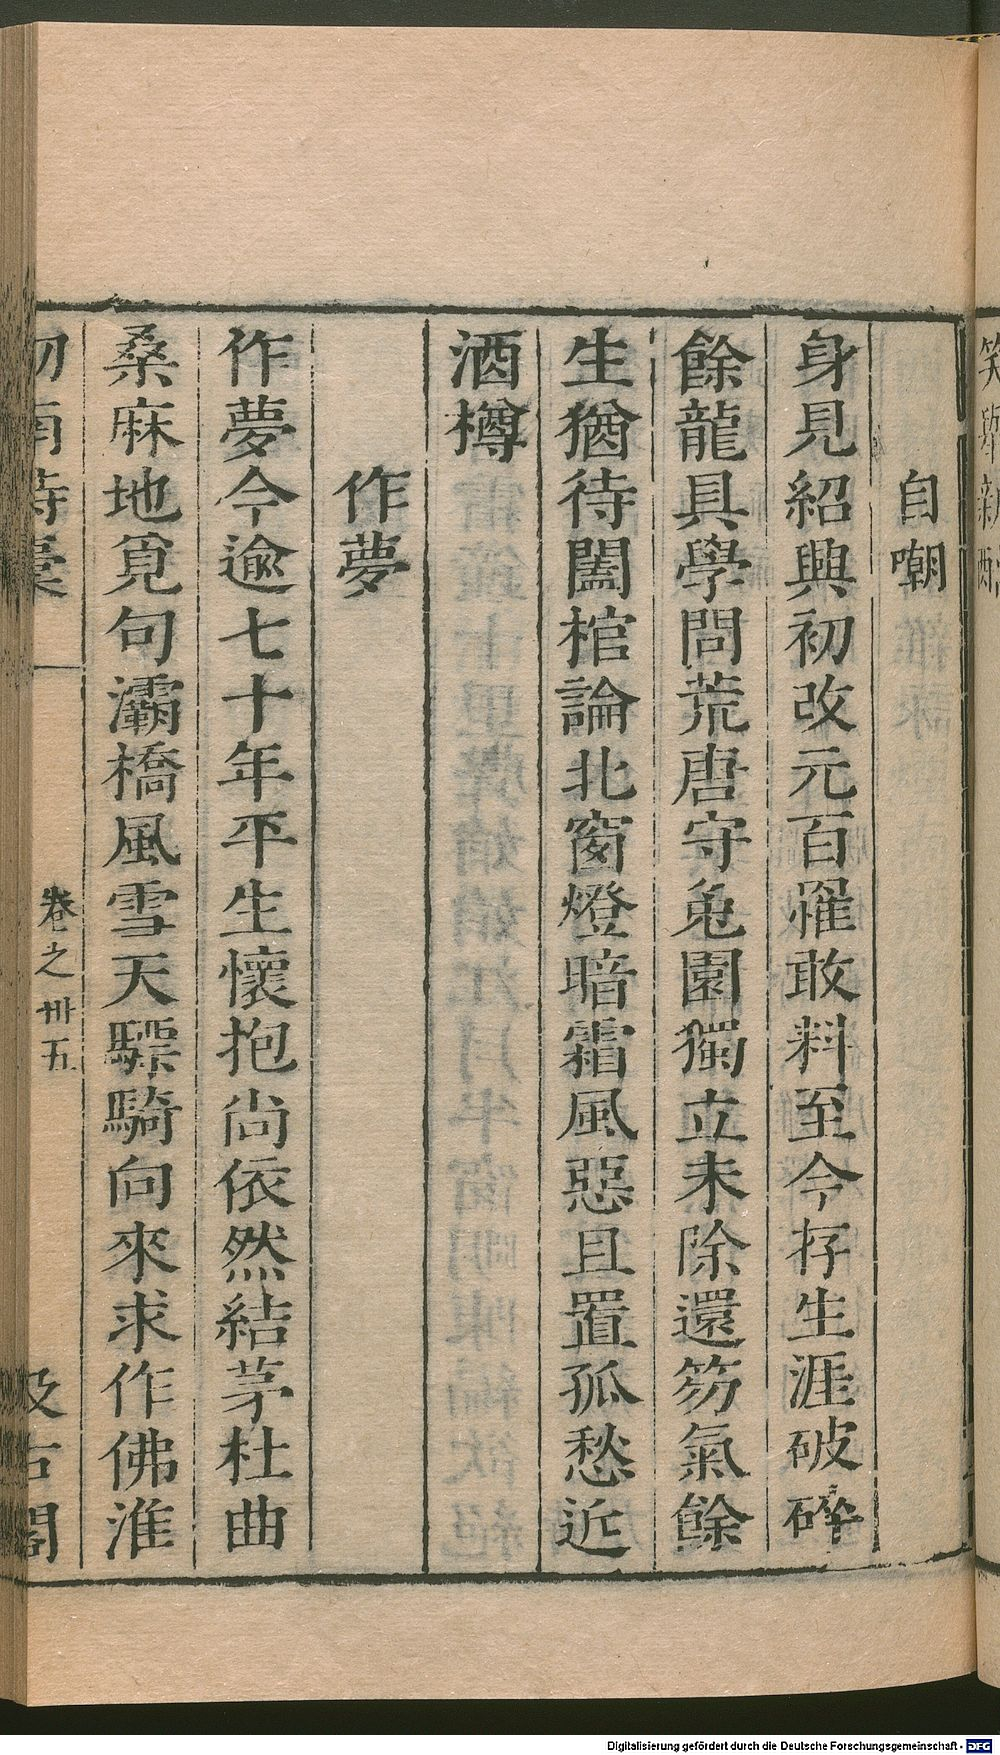 自嘲
身見紹興初改元百罹敢料至今存生涯破碎
餘龍具學問荒唐守兔園獨立未除還笏氣餘
生猶待闔棺論北窗燈暗霜風惡且置孤愁近
酒樽
作夢
作夢今逾七十年平生懷抱尚依然結茅杜曲
桑麻地覓句灞橋風雪天驃騎向來求作佛淮
卷之卅五
Digitalisierung gefördert durch die Deutsche Forschungsgemeinschaft - DFG